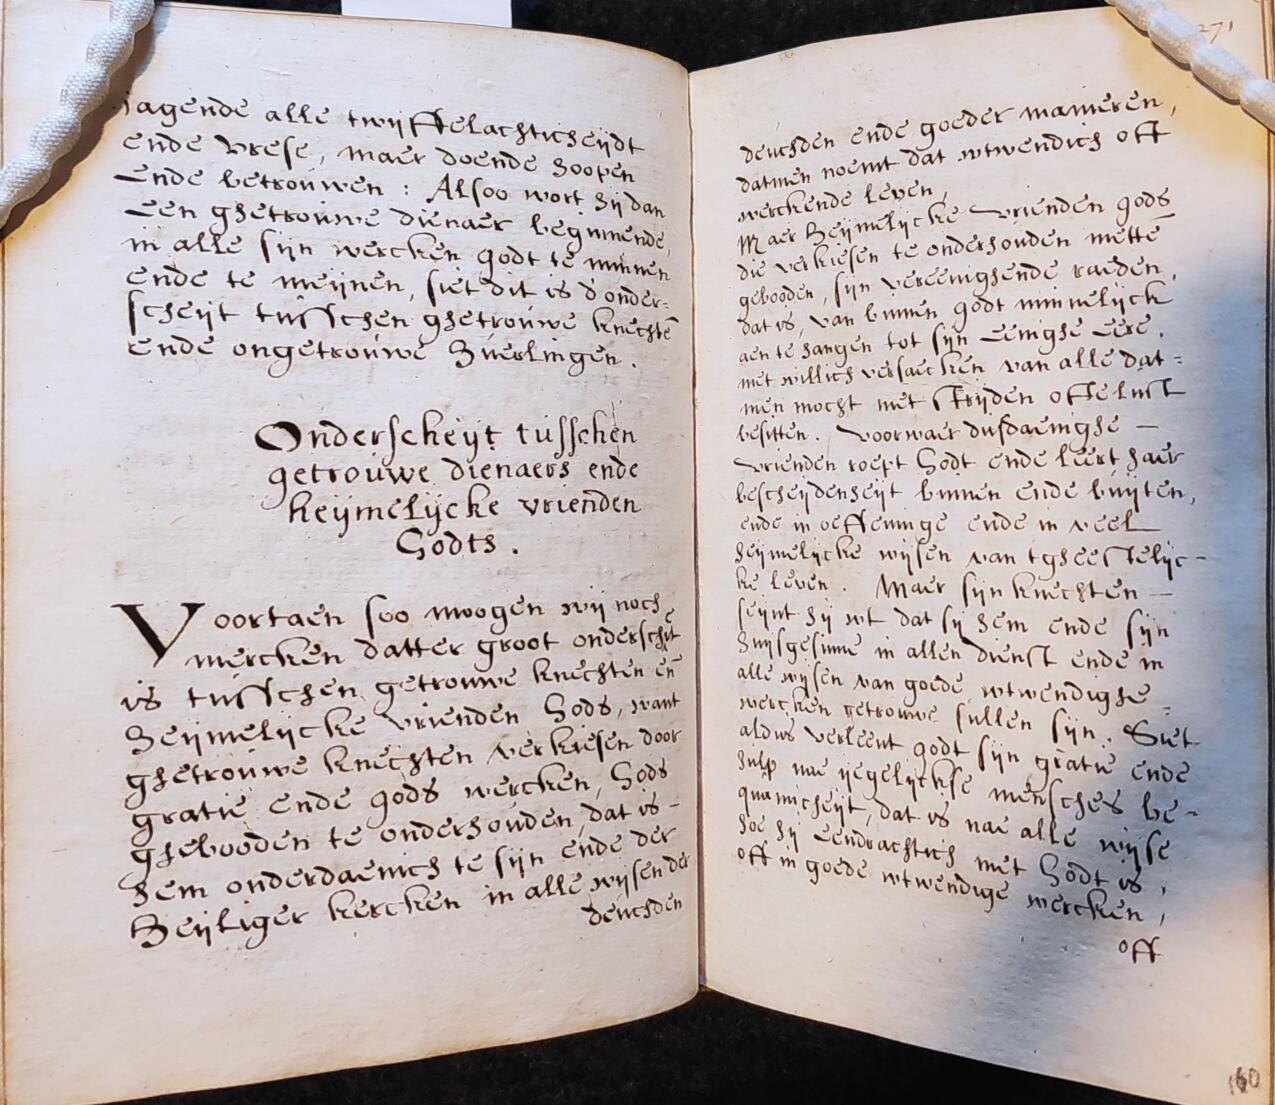 jagende alle twijffelachticheijdt
ende vrese, maer doende hoopen
ende betrouwen : Alsoo wort hij dan
een ghetrouwe dienaer beginnende,
in alle sijn wercken godt te minnen
ende te meijnen, siet dit is d'onder=
scheijt tusschen ghetrouwe knechtē
ende ongetrouwe huerlingen.
Onderscheijt tusschen
getrouwe dienaers ende
heijmelijcke vrienden
Godts.
Voortaen soo moogen wij noch
mercken datter groot onderschēt
is tusschen getrouwe knechten eñ
heijmelijcke vrienden Gods, want
ghetrouwe knechten verkiesen door
gratie ende gods wercken, Gods
ghebooden te onderhouden, dat is -
hem onderdaenich te sijn ende der
heijliger kercken in alle wijsen der
deuchden
271
deuchden ende goeder manieren,
datmen noemt dat wtwendich off
werckende leven,
Maer heijmelijcke vrienden gods
die verkiesen te onderhouden mette
gebooden, sijn vereenighende raeden,
dat is, van binnen godt minnelijck
aen te hangen tot sijn eenighe eere,
met willich versaecken van alle dat=
men mocht met strijden offe lust
besitten. voorwaer dusdaenighe -
vrienden roept Godt ende leert haer
bescheijdenheijt binnen ende buijten,
ende in oeffeninge ende in veel
heijmelijcke wijsen van tgheestelijc-
ke leven. Maer sijn knechten -
seijnt hij wt dat sij hem ende sijn
huijsgesinne in allen dienst ende in
alle wijsen van goede wtwendighe -
wercken getrouwe sullen sijn. Siet
aldus verleent godt sijn gratie ende
hulp nae ijegelijckse mensches be-
quamicheijt, dat is nae alle wijse
hoe hij eendrachtich met Godt is,
off in goede wtwendige wercken,
off
160